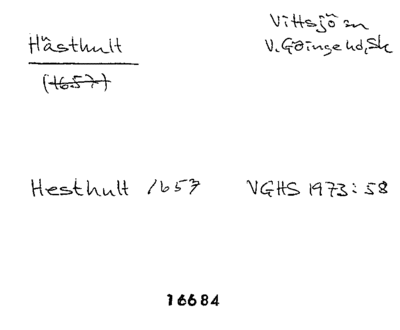 Hästhult
(1657)
Vittsjö sn
V. Göinge hd, Sk
Hesthult 1657 VGHS 1973:58
16684